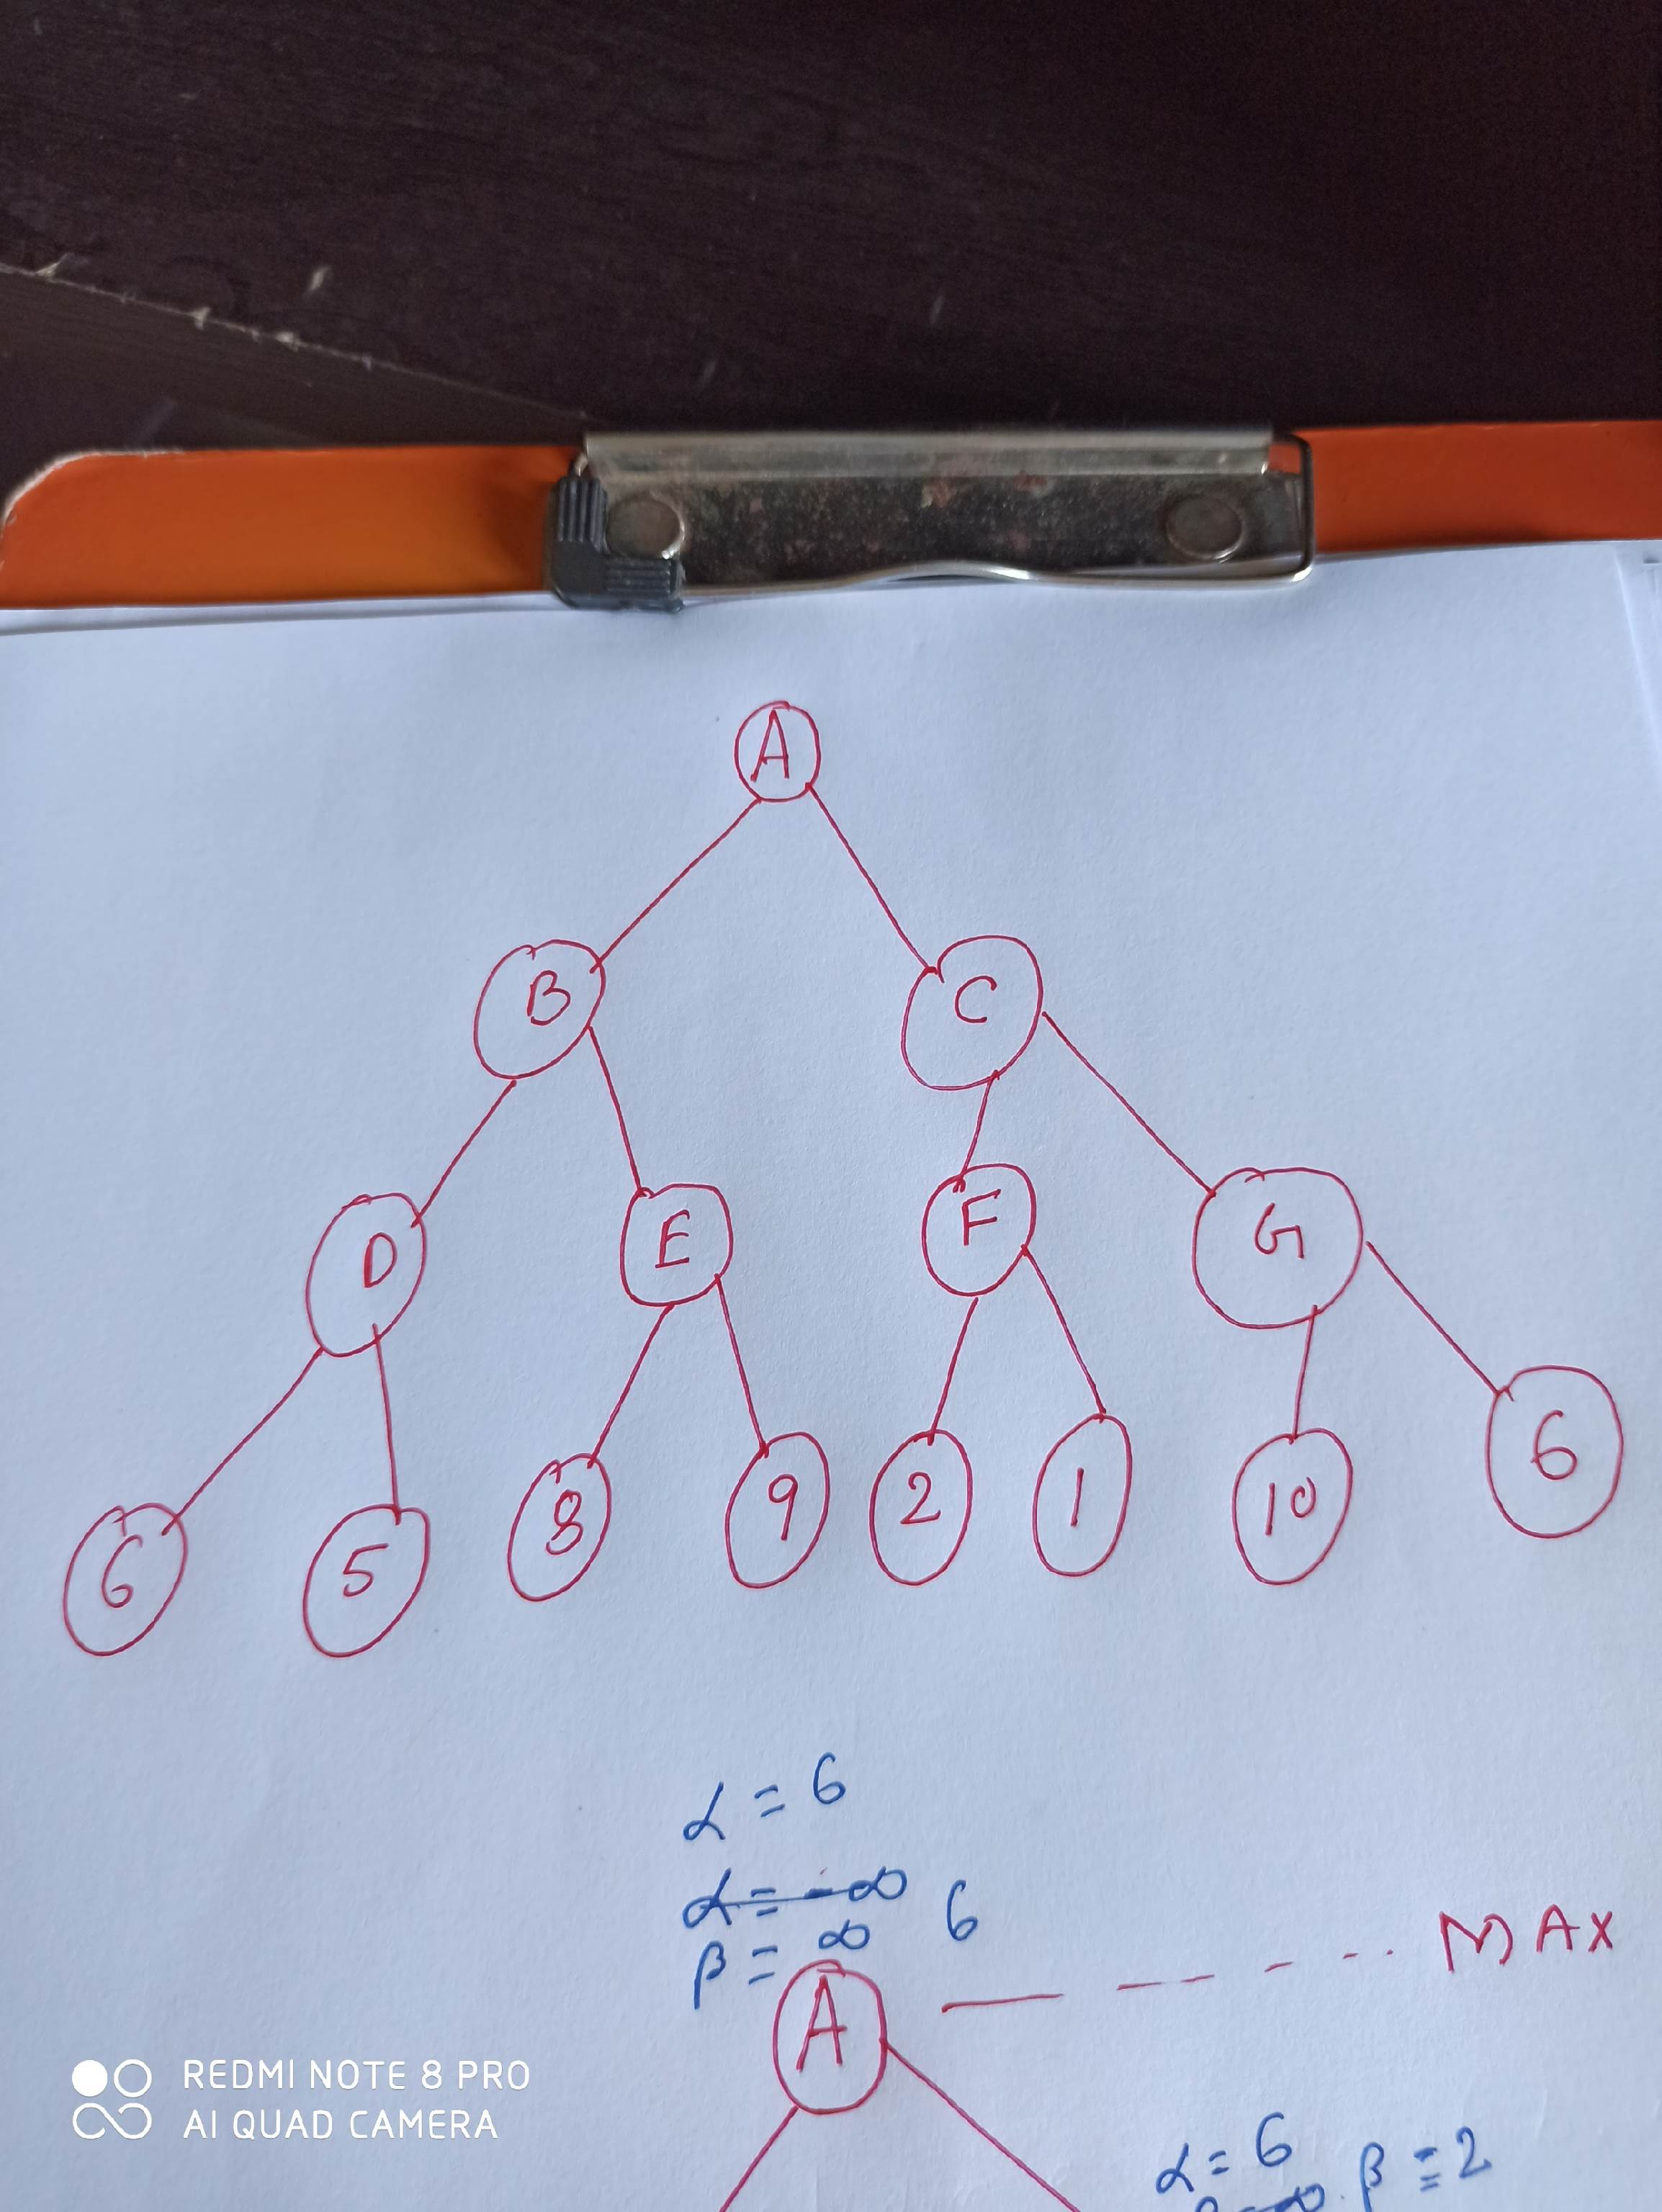 A
B C
D E F G
6 5 8 9 2 1 10 6
α = 6
α = -∞
β = ∞ 6
A MAX
α = 6 β = 2
REDMI NOTE 8 PRO
AI QUAD CAMERA